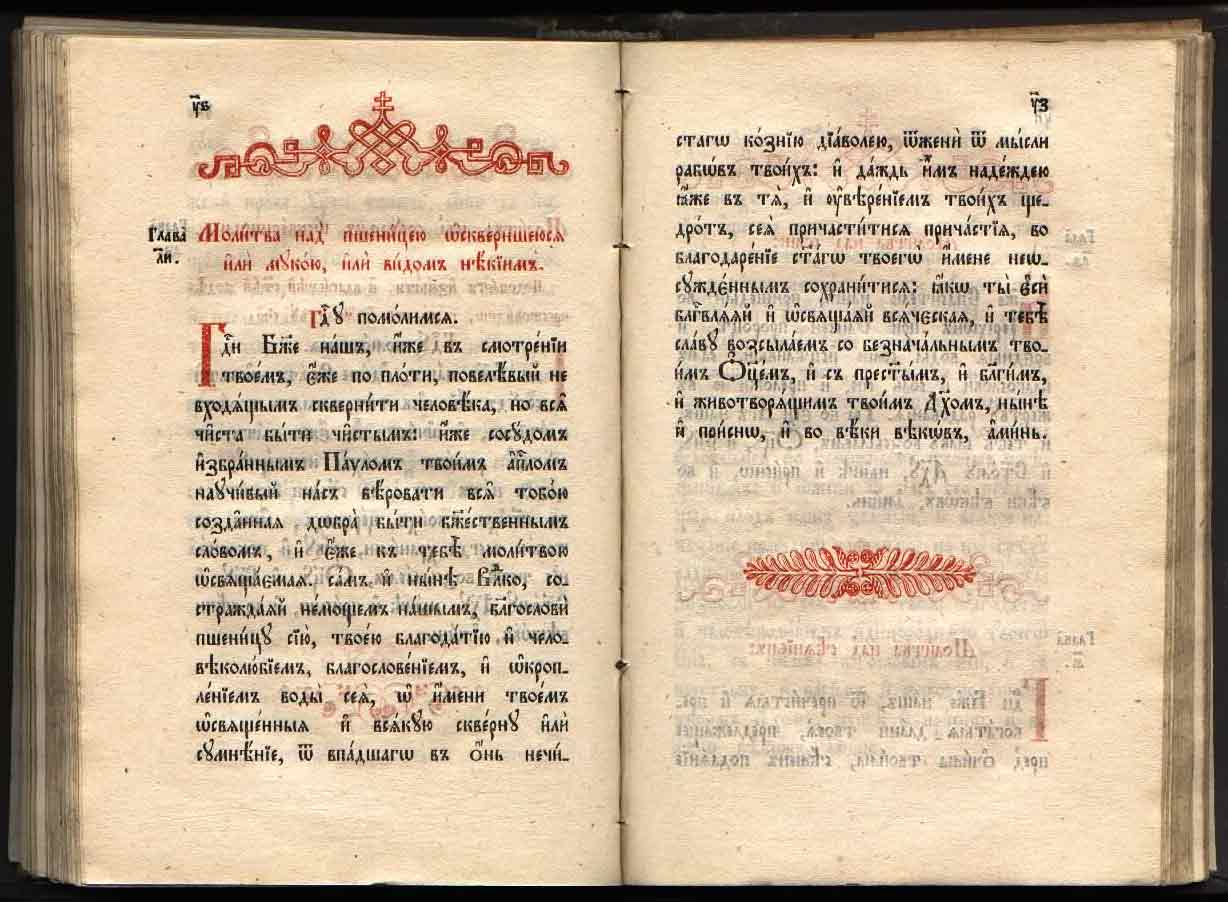 ч҃ѕ
Глава̀
л҃и.
Моли́тва над̾ пшени́цею ѡ҆скверни́шеюсѧ
и҆лѝ мꙋко́ю, и҆лѝ ви́домъ нѣ́кїимъ.
Гдⷭ҇ꙋ помо́лимсѧ.
Гдⷭ҇и Бж҃е нашъ, и҆́же въ смотре́нїи
твое́мъ, є҆́же по пло́ти, повелѣ́вый не
входѧ́щымъ скверни́ти человѣ́ка, но всѧ̑
чи̑ста бы́ти чи̑стымъ: и҆́же сосꙋ́домъ
и҆збра́ннымъ Па́ѵломъ твои́мъ а҆пⷭ҇ломъ
наꙋчи́вый на́съ вѣ́ровати всѧ̑ тобо́ю
созда̑ннаѧ дѡбра̀ бы́ти бж҃е́ственнымъ
сло́вомъ, и҆ є҆́же къ тебѣ̀ моли́твою
ѡ҆свѧща́емаѧ. са́мъ и҆ ны́нѣ Влⷣко, со
стражда́ѧй не́мощемъ на́шымъ, бл҃гословѝ
пшени́цꙋ сїю̀, твое́ю благода́тїю и҆ чело
вѣколю́бїемъ, благослове́нїемъ, и҆ ѡ҆кроп-
ле́нїемъ воды̀ сеѧ̀, ѡ҆ и҆́мени твое́мъ
ѡ҆свѧще́нныѧ и҆ всѧ́кꙋю скве́рнꙋ и҆лѝ
сꙋмнѣ́нїе, ѿ впа́дшагѡ въ ѻ҆́нь нечи́-
ч҃з
стагѡ ко́знїю дїа́волею, ѿженѝ ѿ мы́сли
рабѡ́въ твои́хъ: и҆ да́ждь и҆̀мъ наде́ждею
ꙗ҆́же въ тѧ̀, и҆ ᲂу҆вѣре́нїемъ твои́хъ ще-
дро́тъ, сеѧ̀ причасти́тисѧ прича́стїѧ, во
благодаре́нїе ст҃а́гѡ твоегѡ̀ и҆́мене неѡ-
сꙋжде́ннымъ сохрани́тисѧ: ꙗ҆́кѡ ты̀ є҆сѝ
бл҃гвлѧ́ѧй и҆ ѡ҆свѧща́ѧй всѧ́ческаѧ, и҆ тебѣ̀
сла́вꙋ возсыла́емъ со безнача́льнымъ тво-
и́мъ Ѻ҆ц҃е́мъ, и҆ съ прест҃ы́мъ, и҆ бл҃ги́мъ,
и҆ животворѧ́щимъ твои́мъ Дх҃омъ, ны́нѣ
и҆ при́снѡ, и҆ во вѣ́ки вѣкѡ́въ, а҆ми́нь.